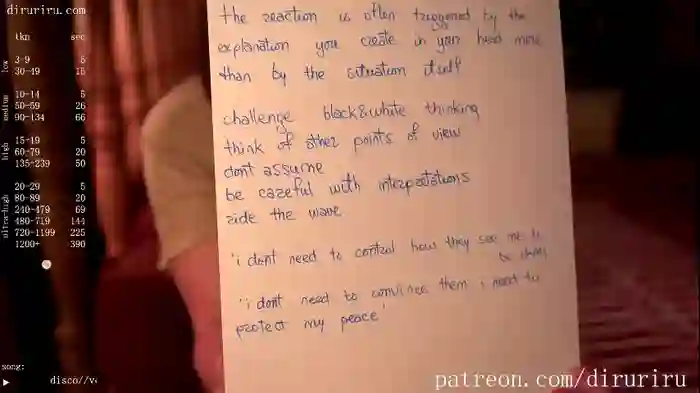 diruriru.com
tkn sec
low
3-9 5
30-49 15
medium
10-14 5
50-59 26
90-134 66
high
15-19 5
60-79 20
135-239 50
ultra-high
20-29 5
80-89 20
240-479 69
480-719 144
720-1199 225
1200+ 390
song:
disco//v
the reaction is often triggered by the
explanation you create in your head more
than by the situation itself
challenge black&white thinking
think of other points of view
dont assume
be careful with interpretations
ride the wave
'i dont need to control how they see me to
be okay
'i dont need to convince them i need to
protect my peace'
patreon.com/diruriru